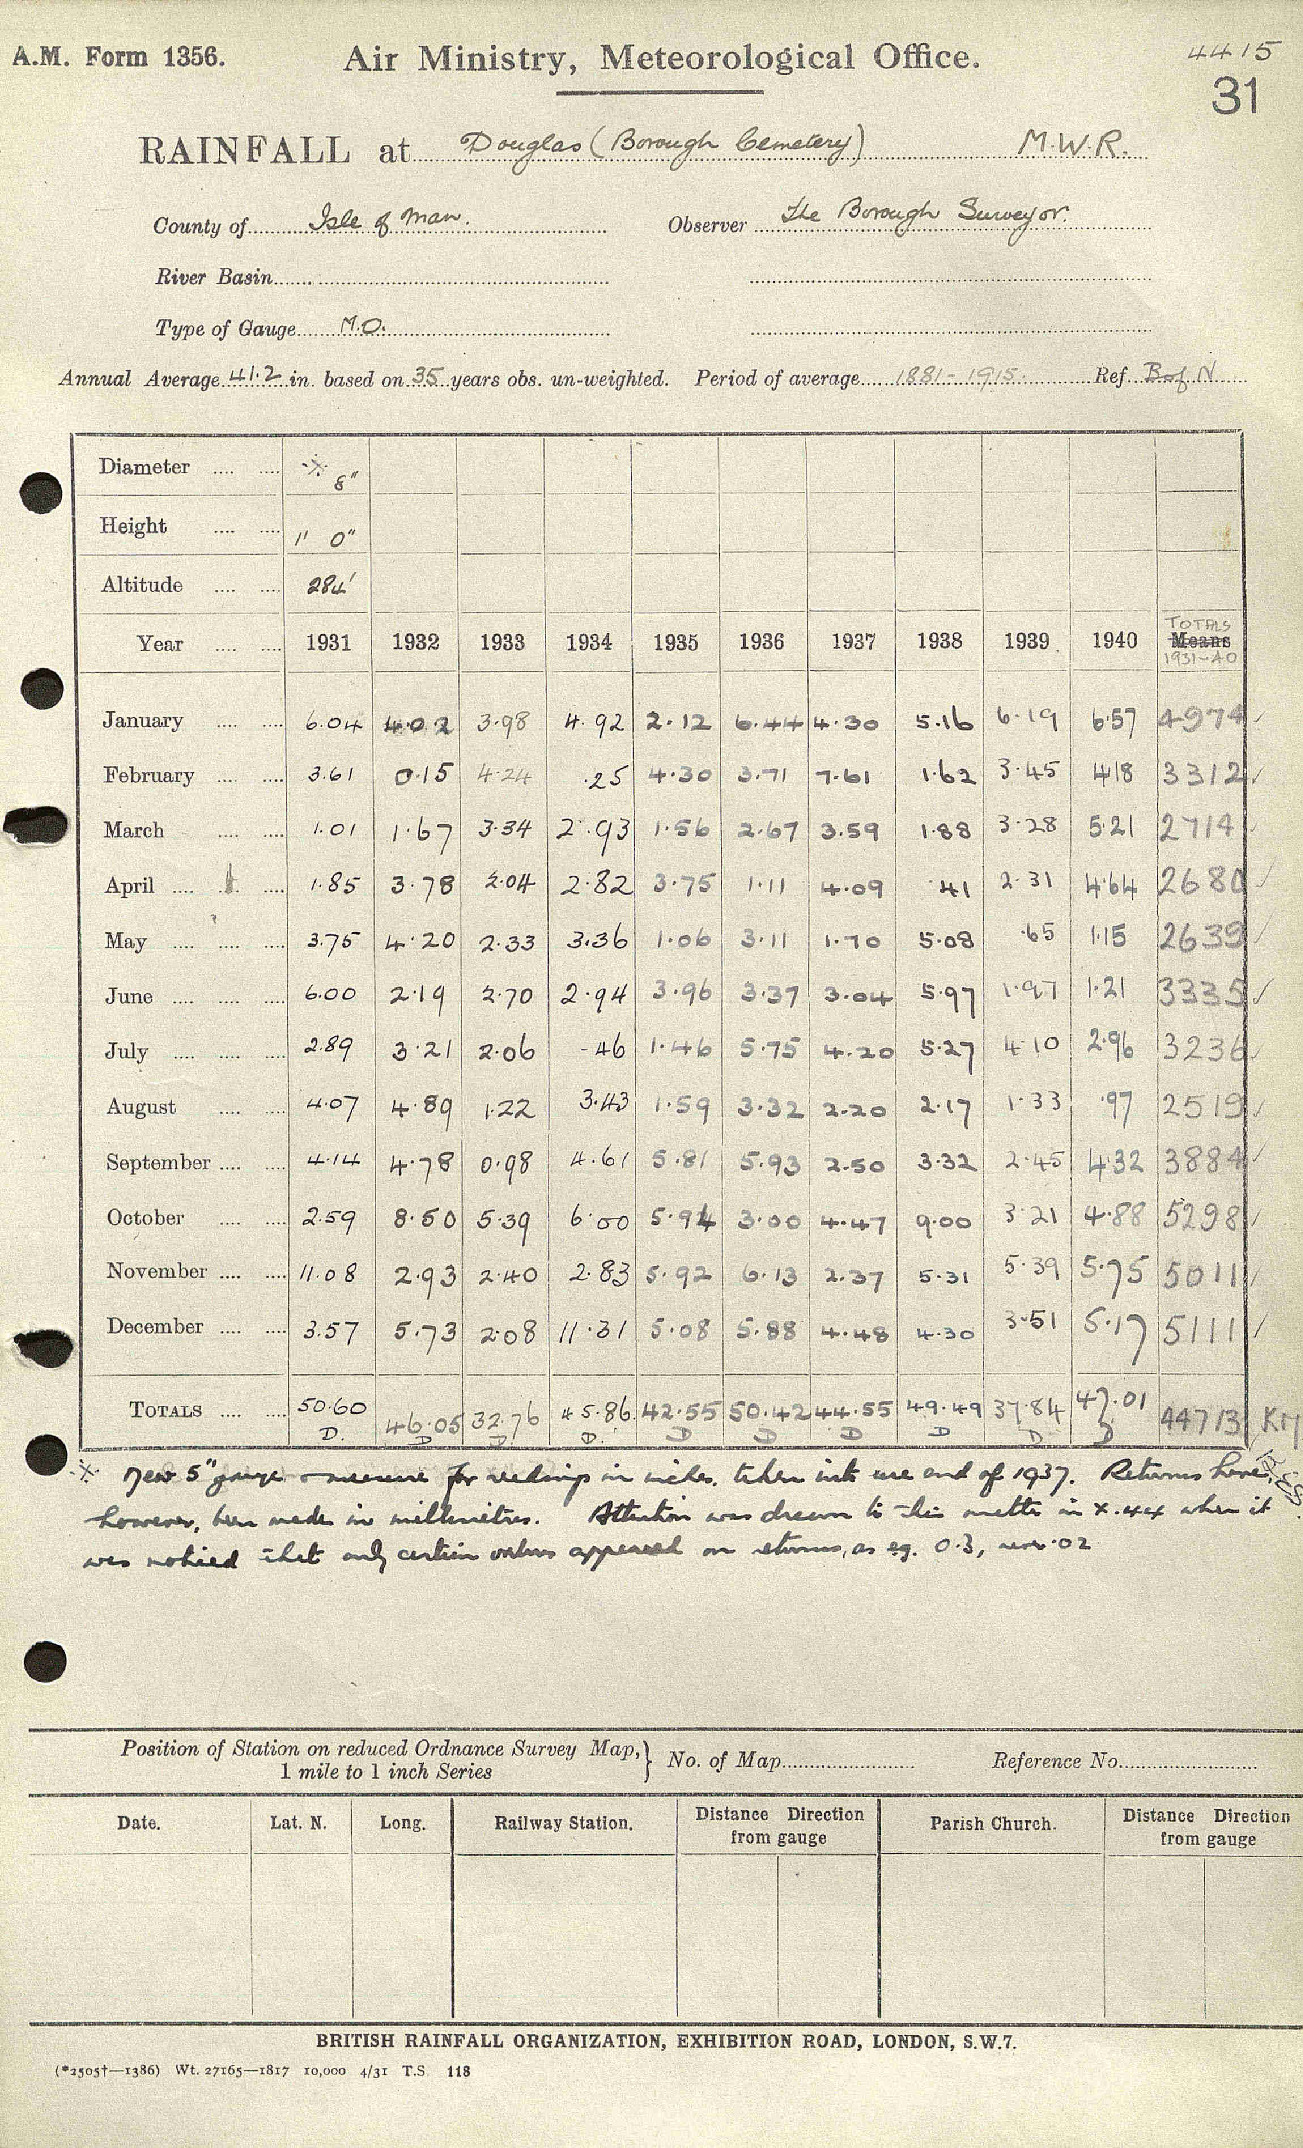 A.M. Form 1356. Air Ministry, Meteorological Office. 4415
31
RAINFALL at Douglas (Borough Cemetery) M.W.R.
County of Isle of Man. Observer The Borough Surveyor.
River Basin
Type of Gauge M.O.
Annual Average 41.2 in. based on 35 years obs. un-weighted. Period of average 1881-1915. Ref. B of N
Diameter 8"
Height 1' 0"
Altitude 284'
Year 1931 1932 1933 1934 1935 1936 1937 1938 1939 1940 TOTALS Means 1931-40
January 6.04 4.02 3.98 4.92 2.12 6.44 4.30 5.16 6.19 6.57 4974
February 3.61 0.15 4.24 .25 4.30 3.71 7.61 1.62 3.45 4.18 3312
March 1.01 1.67 3.34 2.93 1.56 2.67 3.59 1.88 3.28 5.21 2714
April 1.85 3.78 2.04 2.82 3.75 1.11 4.09 .41 2.31 4.64 2680
May 3.75 4.20 2.33 3.36 1.06 3.11 1.70 5.08 .65 1.15 2639
June 6.00 2.19 2.70 2.94 3.96 3.37 3.04 5.97 1.97 1.21 3335
July 2.89 3.21 2.06 .46 1.46 5.75 4.20 5.27 4.10 2.96 3236
August 4.07 4.89 1.22 3.43 1.59 3.32 2.20 2.17 1.33 .97 2519
September 4.14 4.78 0.98 4.61 5.81 5.93 2.50 3.32 2.45 4.32 3884
October 2.59 8.50 5.39 6.00 5.94 3.00 4.47 9.00 3.21 4.88 5298
November 11.08 2.93 2.40 2.83 5.92 6.13 2.37 5.31 5.39 5.75 5011
December 3.57 5.73 2.08 11.31 5.08 5.88 4.48 4.30 3.51 5.17 5111
TOTALS 50.60 46.05 32.76 45.86 42.55 50.42 44.55 49.49 37.84 47.01 44713 KM
D. D D D. D D D D D D
New 5" gauge & measure for readings in inches, taken into use end of 1937. Returns have,
however, been made in millimetres. Attention was drawn to this matter in X.44 when it
was noticed that only certain values appeared on returns, as eg. 0.3, .02
Position of Station on reduced Ordnance Survey Map, No. of Map Reference No.
1 mile to 1 inch Series
Date. Lat. N. Long. Railway Station. Distance Direction from gauge Parish Church. Distance Direction from gauge
BRITISH RAINFALL ORGANIZATION, EXHIBITION ROAD, LONDON, S.W.7.
(*2505†—1386) Wt. 27165—1817 10,000 4/31 T.S. 118